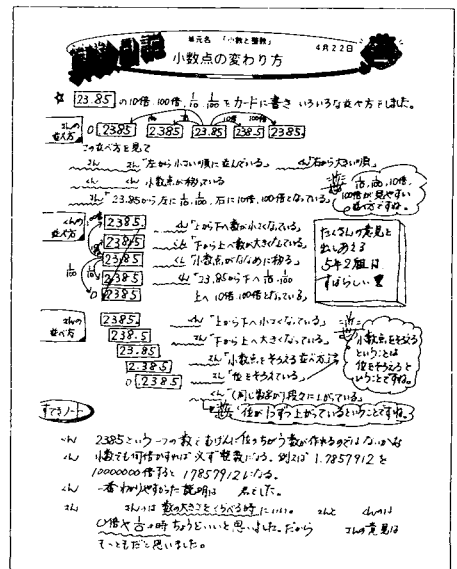 算数日記
単元名 「小数と整数」
4月22日
小数点の変わり方
☆ 23.85 の10倍、100倍、1/10、1/100をカードに書き いろいろな並べ方をしました。
1/100 1/10 10倍 100倍
さんの並べ方 0.2385 2.385 23.85 238.5 2385.
この並べ方を見て
さん さん「左から小さい順に並んでいる」 くん 右から大きい順
くん くん 小数点が移っている
さん「23.85から左に1/10、1/100、右に10倍、100倍となっている」
1/10、1/100、10倍、100倍が見やすい並べ方ですね。
くんの並べ方
2385.
238.5
23.85
2.385
0.2385
くん「上から下へ数が小さくなっている」
さん「下から上へ数が大きくなっている」
くん「小数点がななめに移る」
くん「23.85から下へ1/10、1/100
上へ10倍、100倍となっている」
たくさんの意見と
出しあえる
5年2組は
すばらしい
さんの並べ方
2385.
238.5
23.85
2.385
0.2385
くん「上から下へ小さくなっている」
さん「下から上へ大きくなっている」
さん「小数点をそろえる並べ方」
さん「位をそろえている」
くん「(同じ数字が)段々に上がっている」
小数点をそろえる
ということは
位をそろえると
いうことですね。
位が1つずつ上がっているということですね。
すてきノート
くん 2385という一つの数でむげんに位のちがう数が作れるのではないかな
くん 小数でも何倍かすれば必ず整数になる。例えば 1.7857912を
10000000倍すると17857912になる。
くん 一番わかりやすかった説明は 君でした。
さん さんのは数の大きさをくらべる時にいい。 さんと くんのは
10倍や1/10の時ちょうどいいと思いました。だから さんの意見は
とってもだと思いました。